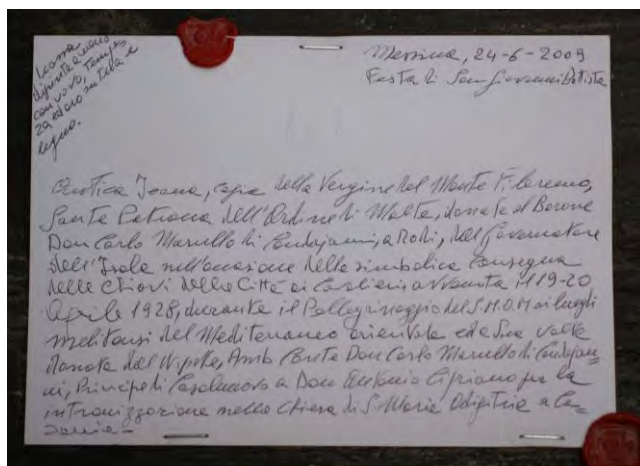 Icona
dipinta a mano
con uovo, tempe
ra ed oro su tela e
legno.
Messina, 24-6-2009
Festa di San Giovanni Batista
Antica Icona, copia della Vergine del Monte Fileremo,
Santa Patrona dell'Ordine di Malta, donata al Barone
Don Carlo Marullo di Condojanni, a Rodi, dal Governatore
dell'Isola nell'occasione della simbolica consegna
delle Chiavi della Città ai Cavalieri, avvenuta il 19-20
Aprile 1928, durante il Pellegrinaggio del S.M.O.M. ai luoghi
melitensi del Mediterraneo orientale ed a Sua volta
donata dal Nipote, Amb. Conte Don Carlo Marullo di Condojan=
ni, Principe di Casalnuovo a Don Antonio Cipriano per la
intronizzazione nella Chiesa di S. Maria Odigitria a Ca=